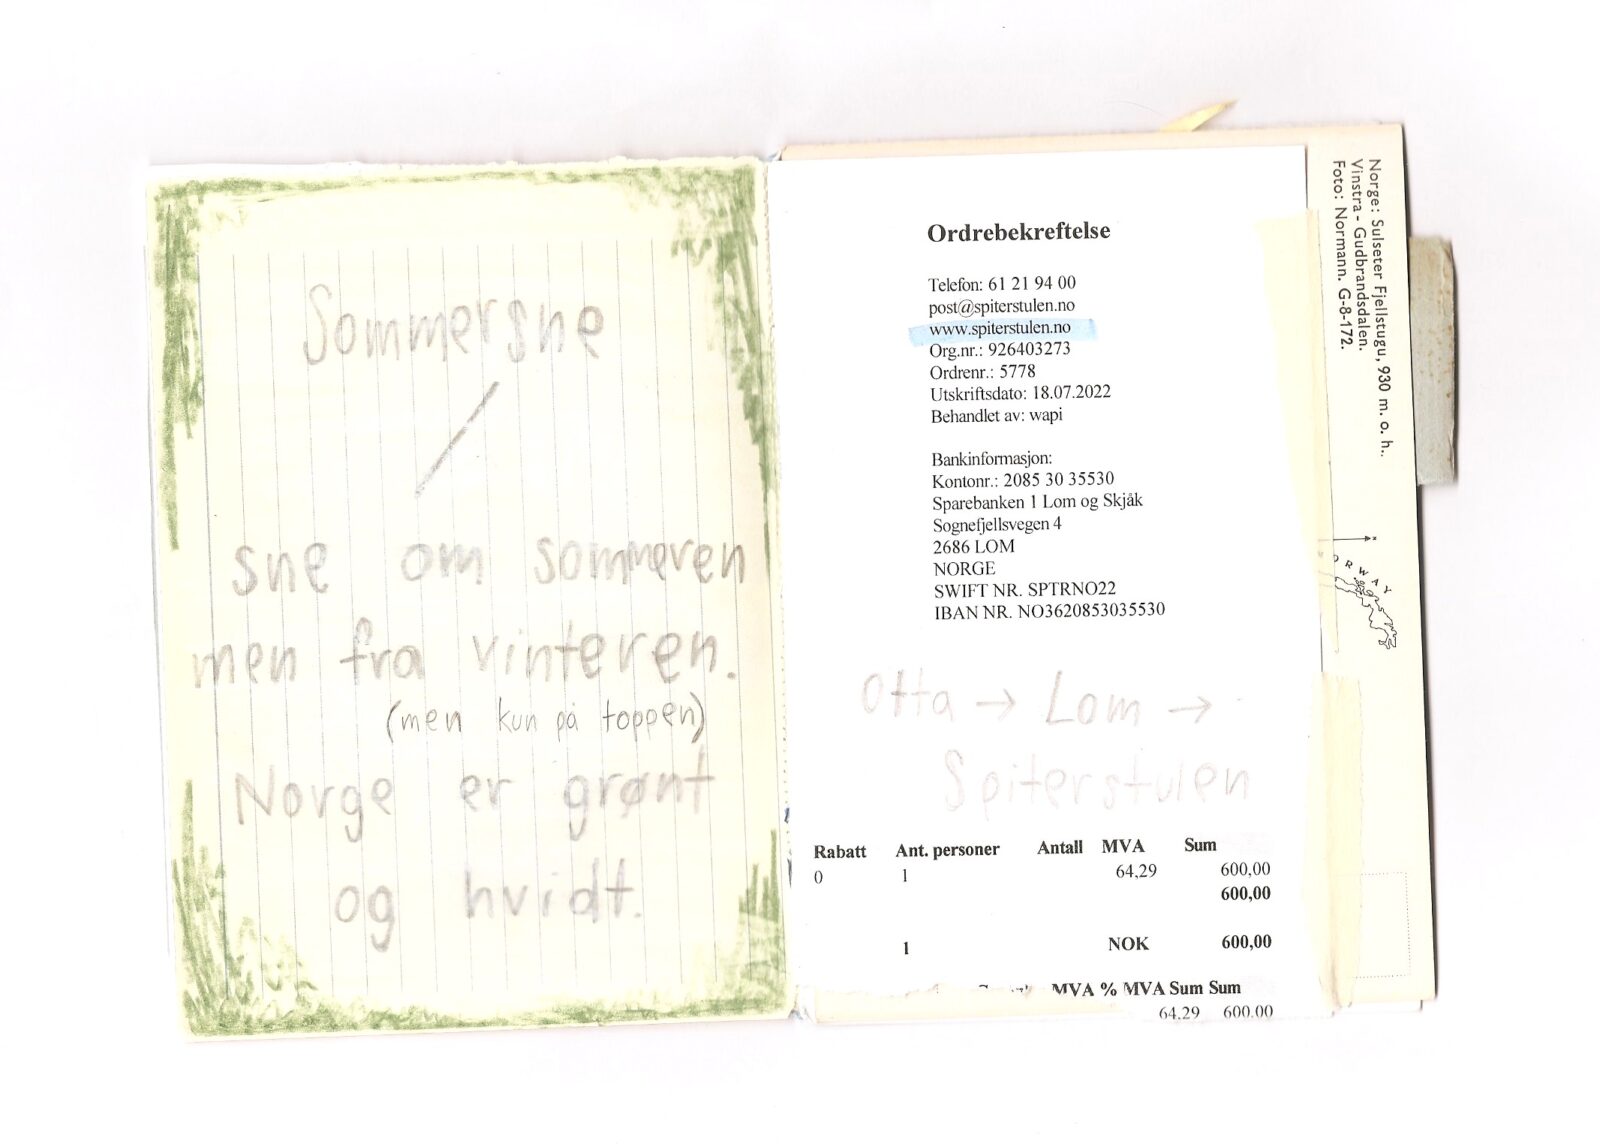 Sommersne
sne om sommeren
men fra vinteren.
(men kun på toppen)
Norge er grønt
og hvidt.
Ordrebekreftelse
Telefon: 61 21 94 00
post@spiterstulen.no
www.spiterstulen.no
Org.nr.: 926403273
Ordrenr.: 5778
Utskriftsdato: 18.07.2022
Behandlet av: wapi
Bankinformasjon:
Kontonr.: 2085 30 35530
Sparebanken 1 Lom og Skjåk
Sognefjellsvegen 4
2686 LOM
NORGE
SWIFT NR. SPTRNO22
IBAN NR. NO3620853035530
Otta → Lom →
Spiterstulen
Rabatt Ant. personer Antall MVA Sum
0 1 64,29 600,00
600,00
1 NOK 600,00
MVA % MVA Sum Sum
64,29 600,00
Norge: Sulseter Fjellstugu, 930 m. o. h..
Vinstra - Gudbrandsdalen.
Foto: Normann. G-8-172.